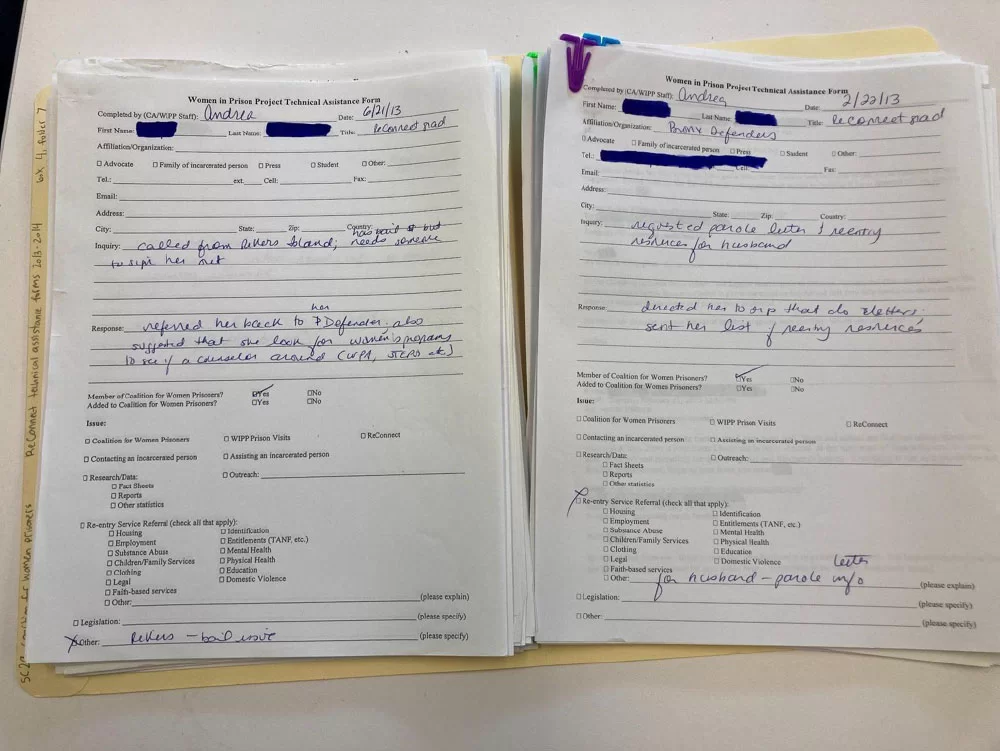 Women in Prison Project Technical Assistance Form
Completed by (CA/WIPP Staff): Andrea Date: 6/21/13
First Name: Last Name: Title: ReConnect grad
Affiliation/Organization:
☐ Advocate ☐ Family of incarcerated person ☐ Press ☐ Student ☐ Other:
Tel.: ext. Cell: Fax:
Email:
Address:
City: State: Zip: Country:
has bail $ but
Inquiry: called from Rikers Island; needs someone
to sign her out
her
Response: referred her back to Defender. also
suggested that she look for women's programs
to see if a counselor around (WPA, STEPS etc)
Member of Coalition for Women Prisoners? ☑Yes ☐No
Added to Coalition for Women Prisoners? ☐Yes ☐No
Issue:
☐ Coalition for Women Prisoners ☐ WIPP Prison Visits ☐ ReConnect
☐ Contacting an incarcerated person ☐ Assisting an incarcerated person
☐ Research/Data: ☐ Outreach:
☐ Fact Sheets
☐ Reports
☐ Other statistics
☐ Re-entry Service Referral (check all that apply):
☐ Housing ☐ Identification
☐ Employment ☐ Entitlements (TANF, etc.)
☐ Substance Abuse ☐ Mental Health
☐ Children/Family Services ☐ Physical Health
☐ Clothing ☐ Education
☐ Legal ☐ Domestic Violence
☐ Faith-based services
☐ Other: (please explain)
☐ Legislation: (please specify)
☒ Other: Rikers - bail issue (please specify)
Women in Prison Project Technical Assistance Form
Completed by (CA/WIPP Staff): Andrea Date: 2/22/13
First Name: Last Name: Title: ReConnect grad
Affiliation/Organization: Bronx Defenders
☐ Advocate ☐ Family of incarcerated person ☐ Press ☐ Student ☐ Other:
Tel.: Cell: Fax:
Email:
Address:
City: State: Zip: Country:
Inquiry: requested parole letter & reentry
resources for husband
Response: directed her to orgs that do letters;
sent her list of reentry resources
Member of Coalition for Women Prisoners? ☑Yes ☐No
Added to Coalition for Women Prisoners? ☐Yes ☐No
Issue:
☐ Coalition for Women Prisoners ☐ WIPP Prison Visits ☐ ReConnect
☐ Contacting an incarcerated person ☐ Assisting an incarcerated person
☐ Research/Data: ☐ Outreach:
☐ Fact Sheets
☐ Reports
☐ Other statistics
☒ Re-entry Service Referral (check all that apply):
☐ Housing ☐ Identification
☐ Employment ☐ Entitlements (TANF, etc.)
☐ Substance Abuse ☐ Mental Health
☐ Children/Family Services ☐ Physical Health
☐ Clothing ☐ Education
☐ Legal ☐ Domestic Violence
☐ Faith-based services letter
☐ Other: for husband - parole info (please explain)
☐ Legislation: (please specify)
☐ Other: (please specify)
coalition for women prisoners ReConnect technical assistance forms 2013-2014 box 4, folder 7